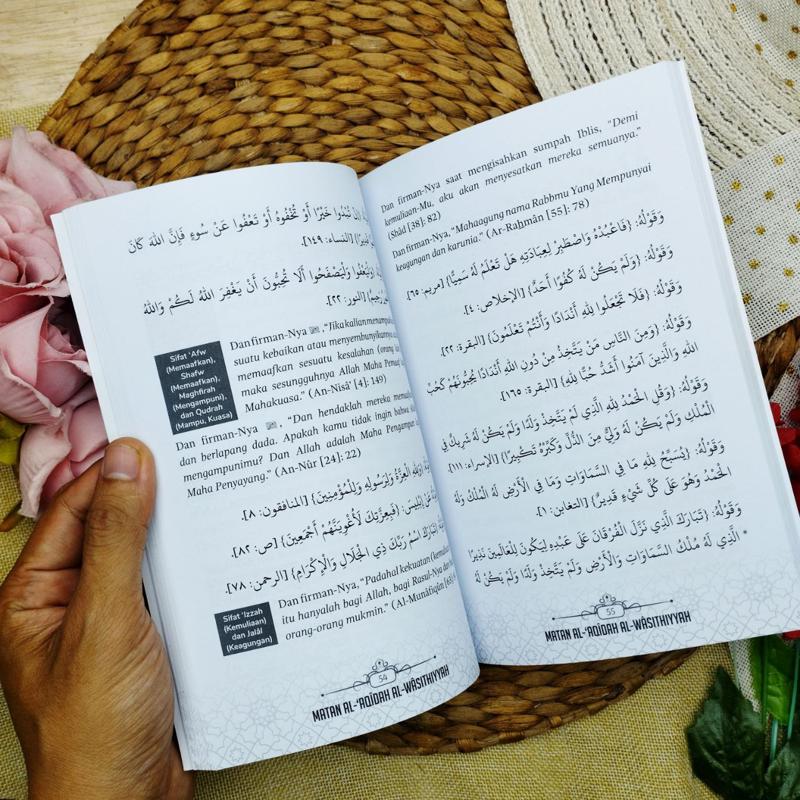 إِنْ تُبْدُوا خَيْرًا أَوْ تُخْفُوهُ أَوْ تَعْفُوا عَنْ سُوءٍ فَإِنَّ اللهَ كَانَ
[النساء: ١٤٩].
وَلْيَعْفُوا وَلْيَصْفَحُوا أَلَا تُحِبُّونَ أَنْ يَغْفِرَ اللهُ لَكُمْ وَاللهُ
[النور: ٢٢].
Sifat 'Afw
(Memaafkan),
Shafw
(Memaafkan),
Maghfirah
(Mengampuni),
dan Qudrah
(Mampu, Kuasa)
Dan firman-Nya ﷻ, "Jika kalian
suatu kebaikan atau menyembunyikannya
memaafkan sesuatu kesalahan (orang
maka sesungguhnya Allah Maha
Mahakuasa." (An-Nisâ' [4]: 149)
Dan firman-Nya ﷻ, "Dan hendaklah mereka
dan berlapang dada. Apakah kamu tidak ingin bahwa
mengampunimu? Dan Allah adalah Maha Pengampun
Maha Penyayang." (An-Nûr [24]: 22)
الْعِزَّةُ وَلِرَسُولِهِ وَلِلْمُؤْمِنِينَ} [المنافقون: ٨].
إِبْلِيسَ: {فَبِعِزَّتِكَ لَأُغْوِيَنَّهُمْ أَجْمَعِينَ} [ص: ٨٢].
اسْمُ رَبِّكَ ذِي الْجَلَالِ وَالْإِكْرَامِ} [الرحمن: ٧٨].
Sifat 'Izzah
(Kemuliaan)
dan Jalâl
(Keagungan)
Dan firman-Nya, "Padahal kekuatan
itu hanyalah bagi Allah, bagi Rasul-Nya
orang-orang mukmin." (Al-Munâfiqûn
54
MATAN AL-'AQÎDAH AL-WÂSITHIYYAH
Dan firman-Nya saat mengisahkan sumpah Iblis, "Demi
kemuliaan-Mu, aku akan menyesatkan mereka semuanya."
(Shâd [38]: 82)
Dan firman-Nya, "Mahaagung nama Rabbmu Yang Mempunyai
keagungan dan karunia." (Ar-Rahmân [55]: 78)
وَقَوْلُهُ: {فَاعْبُدْهُ وَاصْطَبِرْ لِعِبَادَتِهِ هَلْ تَعْلَمُ لَهُ سَمِيًّا} [مريم: ٦٥]
وَقَوْلُهُ: {وَلَمْ يَكُنْ لَهُ كُفُوًا أَحَدٌ} [الإخلاص: ٤].
وَقَوْلُهُ: {فَلَا تَجْعَلُوا لِلهِ أَنْدَادًا وَأَنْتُمْ تَعْلَمُونَ} [البقرة: ٢٢].
وَقَوْلُهُ: {وَمِنَ النَّاسِ مَنْ يَتَّخِذُ مِنْ دُونِ اللهِ أَنْدَادًا يُحِبُّونَهُمْ كَحُبِّ
اللهِ وَالَّذِينَ آمَنُوا أَشَدُّ حُبًّا لِلهِ} [البقرة: ١٦٥].
وَقَوْلُهُ: {وَقُلِ الْحَمْدُ لِلهِ الَّذِي لَمْ يَتَّخِذْ وَلَدًا وَلَمْ يَكُنْ لَهُ شَرِيكٌ فِي
الْمُلْكِ وَلَمْ يَكُنْ لَهُ وَلِيٌّ مِنَ الذُّلِّ وَكَبِّرْهُ تَكْبِيرًا} [الإسراء: ١١١].
وَقَوْلُهُ: {يُسَبِّحُ لِلهِ مَا فِي السَّمَاوَاتِ وَمَا فِي الْأَرْضِ لَهُ الْمُلْكُ وَلَهُ
الْحَمْدُ وَهُوَ عَلَى كُلِّ شَيْءٍ قَدِيرٌ} [التغابن: ١].
وَقَوْلُهُ: {تَبَارَكَ الَّذِي نَزَّلَ الْفُرْقَانَ عَلَى عَبْدِهِ لِيَكُونَ لِلْعَالَمِينَ نَذِيرًا
* الَّذِي لَهُ مُلْكُ السَّمَاوَاتِ وَالْأَرْضِ وَلَمْ يَتَّخِذْ وَلَدًا وَلَمْ يَكُنْ لَهُ
55
MATAN AL-'AQÎDAH AL-WÂSITHIYYAH